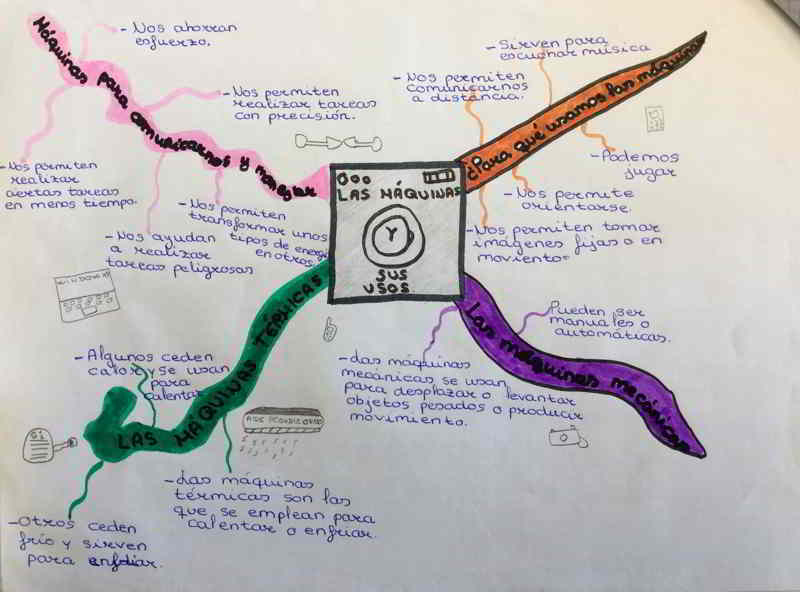 Máquinas para comunicarnos y manejar
- Nos ahorran
esfuerzo.
- Nos permiten
realizar tareas
con precisión.
- Nos permiten
realizar
ciertas tareas
en menos tiempo.
- Nos permiten
transformar unos
tipos de energí
en otros.
- Nos ayudan
a realizar
tareas peligrosas
¿Para qué usamos las máquinas
- Sirven para
escuchar música
- Nos permiten
comunicarnos
a distáncia.
- Podemos
jugar
- Nos permite
orientarse.
- Nos permiten tomar
imágenes fijas o en
moviento.
LAS MÁQUINAS
Y
SUS
USOS
LAS MAQUINAS TÉRMICAS
- Algunos ceden
calor y se usan
para
calentar
- Las máquinas
térmicas son las
que se emplean para
calentar o enfriar.
- Otros ceden
frío y sirven
para enfriar.
AIRE ACONDICIONADO
Las máquinas mecánicas
Pueden ser
manuales o
automáticas.
- Las máquinas
mecánicas se usan
para desplazar o levantar
objetos pesados o producir
movimiento.